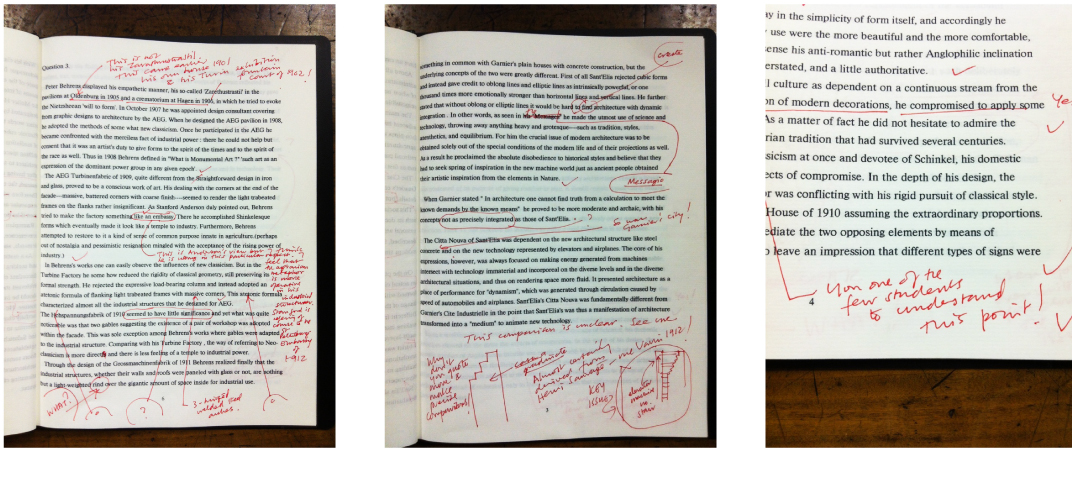 Question 3.
This is not
his Zarathustrastil!
This came earlier
his own house 1901
& his Turin exhibition
fountain
court of 1902!
Peter Behrens displayed his empathetic manner, his so-called 'Zarathustrastil' in the
pavilions at Oldenburg in 1905 and a crematorium at Hagen in 1906, in which he tried to evoke
the Nietzshrean 'will to form'. In October 1907 he was appointed design consultant covering
from graphic designs to architecture by the AEG. When he designed the AEG pavilion in 1908,
he adopted the methods of some what new classicism. Once he participated in the AEG he
became confronted with the merciless fact of industrial power : there he could not help but
consent that it was an artist's duty to give forms to the spirit of the times and to the spirit of
the race as well. Thus in 1908 Behrens defined in "What is Monumental Art ?" 'such art as an
expression of the dominant power group in any given epoch'.
The AEG Turbinenfabrie of 1909, quite different from the Straightforward design in iron
and glass, proved to be a conscious work of art. His dealing with the corners at the end of the
facade—massive, battered corners with coarse finish—seemed to render the light trabeated
frames on the flanks rather insignificant. As Stanford Anderson duly pointed out, Behrens
tried to make the factory something like an embassy. There he accomplished Shinkelesque
forms which eventually made it look like a temple to industry. Furthermore, Behrens
attempted to restore to it a kind of sense of common purpose innate in agriculture.(perhaps
out of nostalgia and pessimistic resignation mingled with the acceptance of the rising power of
industry.)
In Behrens's works one can easily observe the influences of new classicism. But in the
Turbine Factory he some how reduced the rigidity of classical geometry, still preserving its
formal strength. He rejected the expressive load-bearing column and instead adopted an
atectonic formula of flanking light trabeated frames with massive corners. This atectonic formula
characterized almost all the industrial structures that he designed for AEG.
The Hochspannungsfabrik of 1910 seemed to have little significance and yet what was quite
noticeable was that two gables suggesting the existence of a pair of workshop was adopted
within the facade. This was sole exception among Behrens's works where gables were adapted
to the industrial structure. Comparing with his Turbine Factory , the way of referring to Neo-
classicism is more direct and there is less feeling of a temple to industrial power.
Through the design of the Grossmaschinenfabrik of 1911 Behrens realized finally that the
industrial structures, whether their walls and roofs were paneled with glass or not, are nothing
but a light-weighted rind over the gigantic amount of space inside for industrial use.
WHAT?
?
3-hinged
welded steel
arches.
create
something in common with Garnier's plain houses with concrete construction, but the
underlying concepts of the two were greatly different. First of all Sant'Elia rejected cubic forms
and instead gave credit to oblong lines and elliptic lines as intrinsically powerful, or one
thousand times more emotionally stronger than horizontal lines and vertical lines. He further
stated that without oblong or elliptic lines it would be hard to find architecture with dynamic
integration . In other words, as seen in his "Message" he made the utmost use of science and
technology, throwing away anything heavy and grotesque—such as tradition, styles,
aesthetics, and equilibrium. For him the crucial issue of modern architecture was to be
obtained solely out of the special conditions of the modern life and of their projections as well.
As a result he proclaimed the absolute disobedience to historical styles and believe that they
had to seek spring of inspiration in the new machine world just as ancient people obtained
their artistic inspiration from the elements in Nature.
Messagio
When Garnier stated " In architecture one cannot find truth from a calculation to meet the
known demands by the known means" he proved to be more moderate and archaic, with his
concepts not as precisely integrated as those of Sant'Elia.
The Citta Nouva of Sant'Elia was dependent on the new architectural structure like steel
concrete and on the new technology represented by elevators and airplanes. The core of his
expressions, however, was always focused on making energy generated from machines
intersect with technology immaterial and incorporeal on the diverse levels and in the diverse
architectural situations, and thus on rendering space more fluid. It presented architecture as a
place of performance for "dynamism", which was generated through circulation caused by
speed of automobiles and airplanes. Sant'Elia's Citta Nouva was fundamentally different from
Garnier's Cite Industrielle in the point that Sant'Elia's was thus a manifestation of architecture
transformed into a "medium" to animate new technology.
This comparison is unclear. See me!
Why
don't
you quote
more &
make
precise
comparisons!
Almost certainly
derived from
Henri Sauvage — rue Vavin
1912!
KEY
ISSUE
3
ay in the simplicity of form itself, and accordingly he
use were the more beautiful and the more comfortable,
ense his anti-romantic but rather Anglophilic inclination
erstated, and a little authoritative.
l culture as dependent on a continuous stream from the
on of modern decorations, he compromised to apply some
Yes
As a matter of fact he did not hesitate to admire the
rian tradition that had survived several centuries.
sicism at once and devotee of Schinkel, his domestic
ects of compromise. In the depth of his design, the
r was conflicting with his rigid pursuit of classical style.
House of 1910 assuming the extraordinary proportions.
ediate the two opposing elements by means of
o leave an impression that different types of signs were
4
You one of the
few students
to understand
this point!